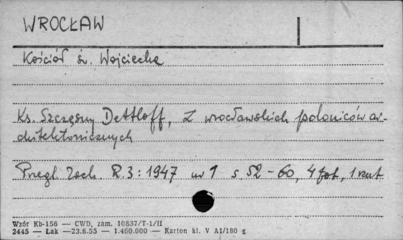 WROCŁAW
Kościół św. Wojciecha
Ks. Szczęsny Dettloff, Z wrocławskich poloniców ar-
chitektonicznych
Przegl. Zach. R. 3: 1947 nr 9 s. 52-60, 4 fot., 1 rzut
Wzór Kb-156 — CWD, zam. 10837/T-1/II
2445 — Łąk — 23.6.55 — 1.400.000 — Karton kl. V A1/180 g